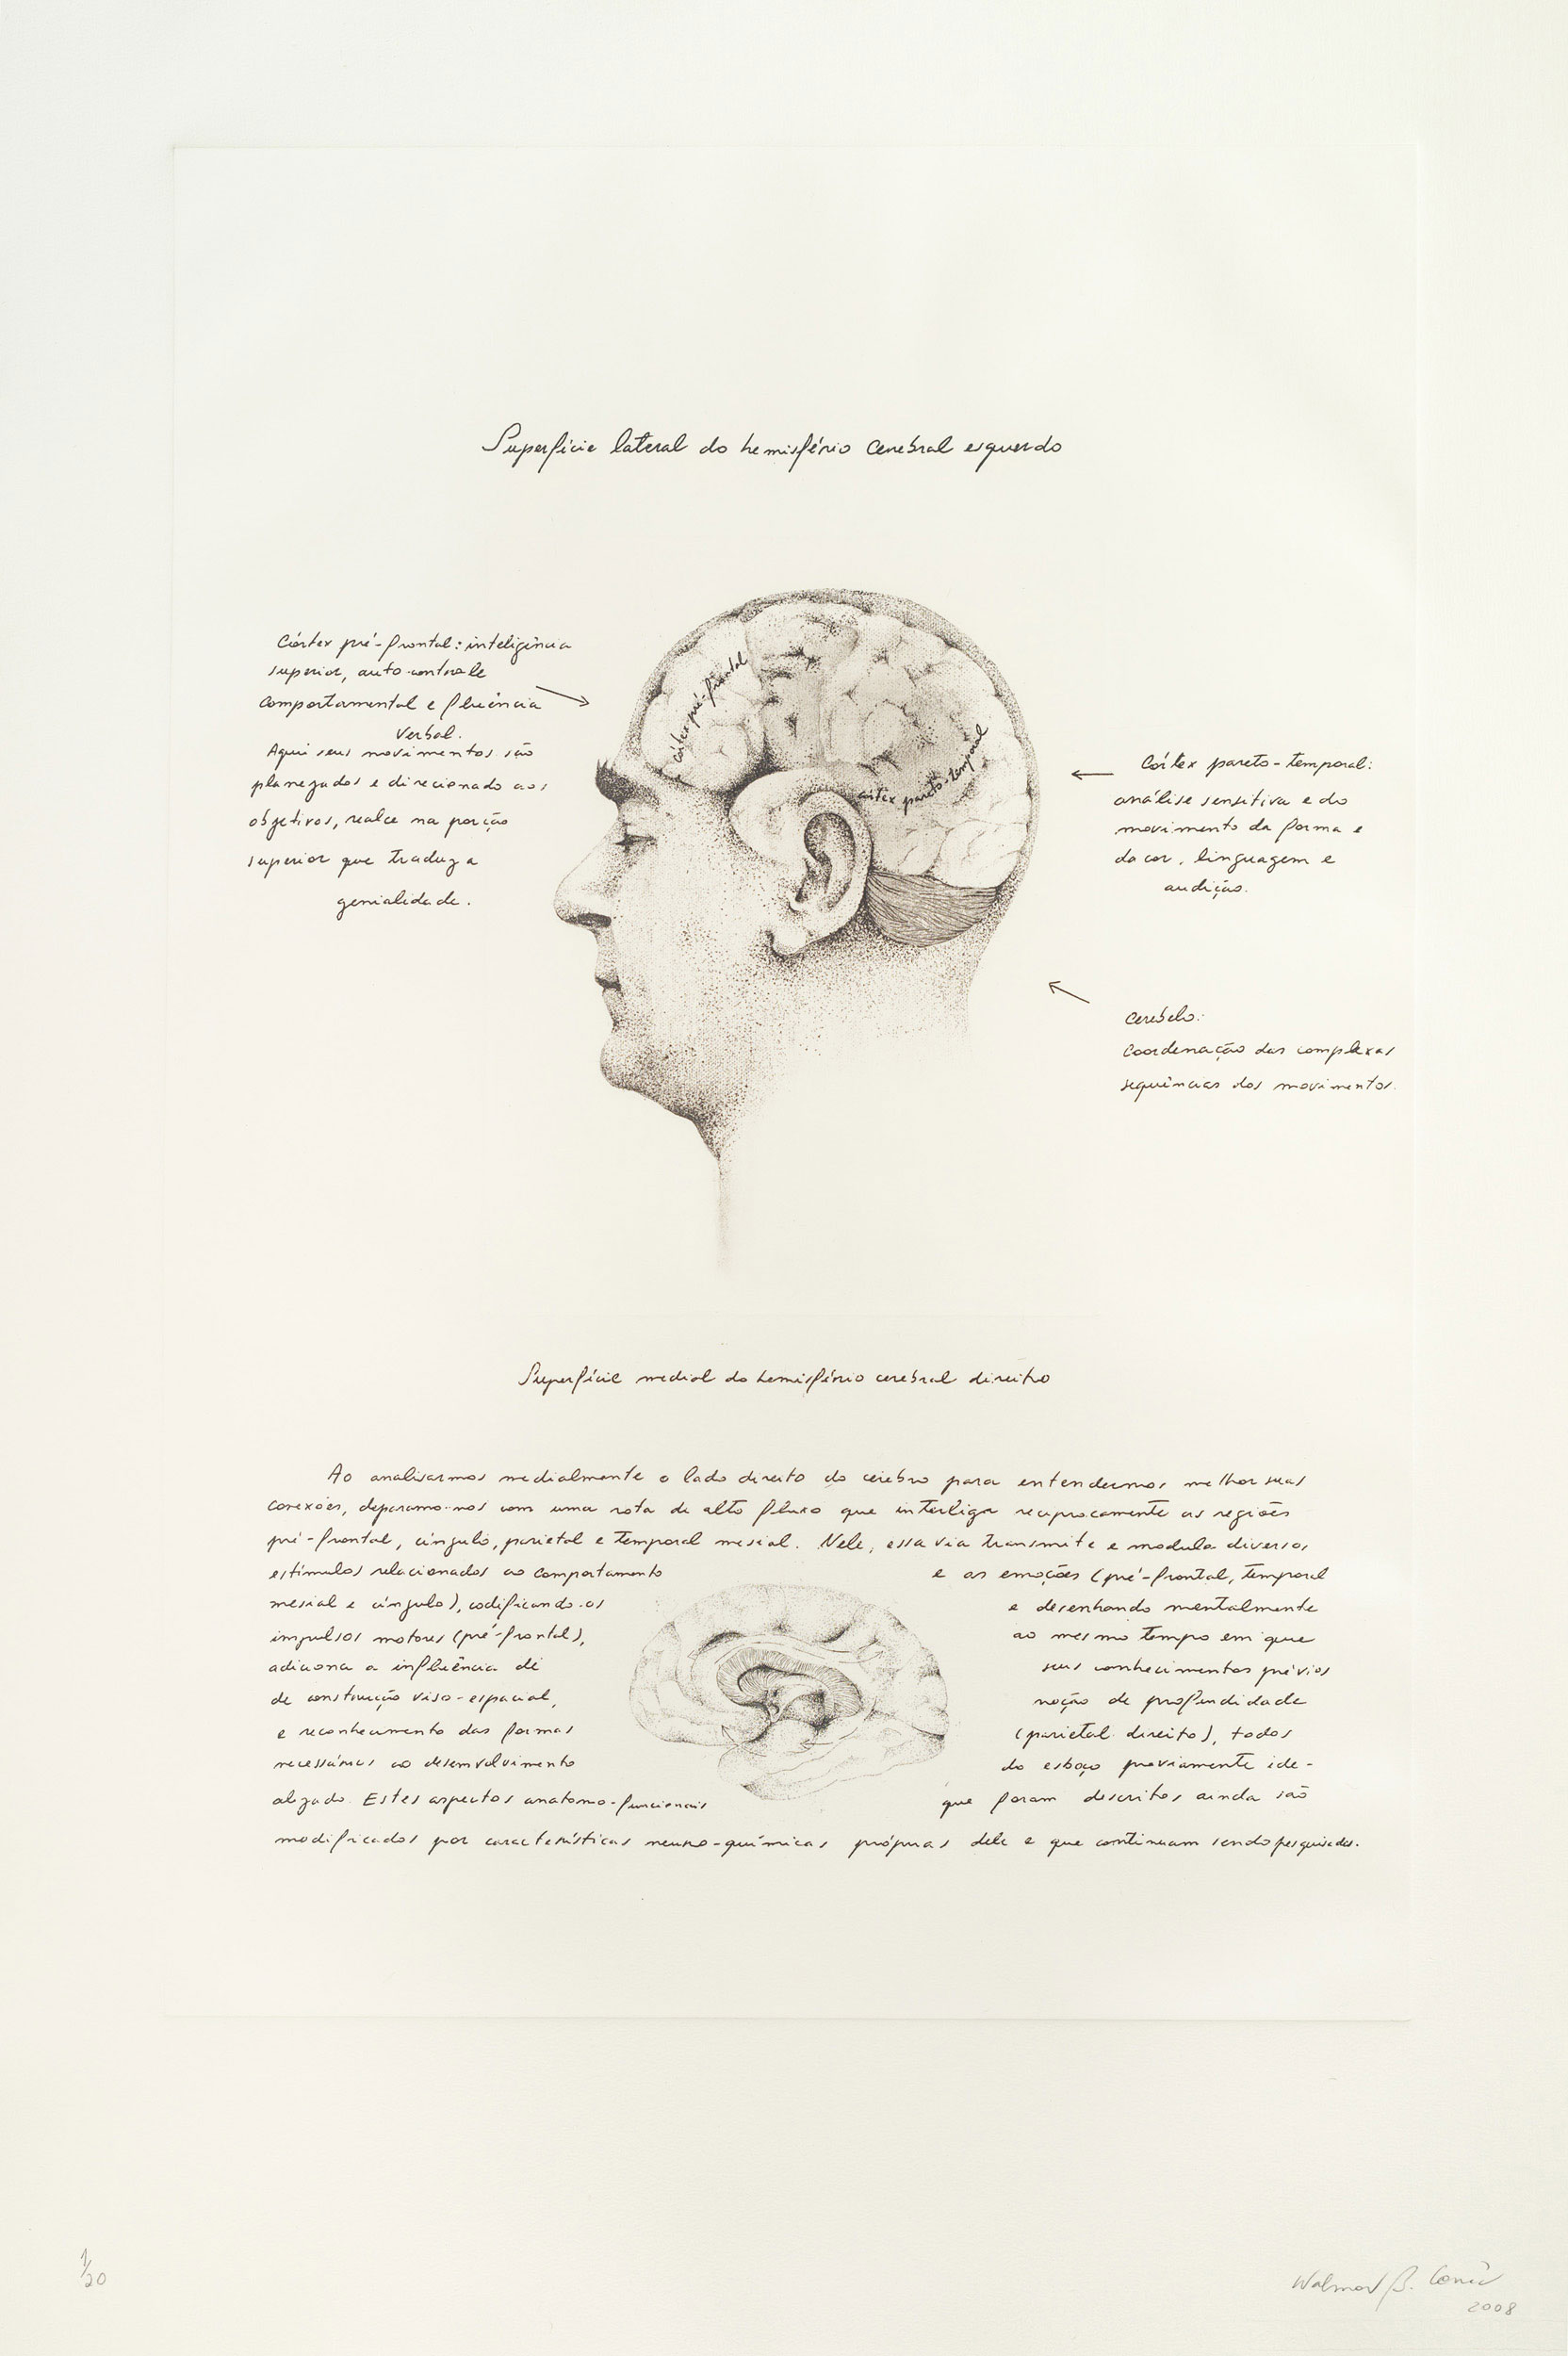 Superfície lateral do hemisfério cerebral esquerdo
Córtex pré-frontal: inteligência
superior, auto-controle
comportamental e fluência
verbal.
Aqui seus movimentos são
planejados e direcionado aos
objetivos, realce na porção
superior que traduz a
genialidade.
córtex pré-frontal
córtex pareto-temporal
Córtex pareto-temporal:
análise sensitiva e do
movimento da forma e
da cor, linguagem e
audição.
Cerebelo:
Coordenação das complexas
sequências dos movimentos.
Superfície medial do hemisfério cerebral direito
Ao analisarmos medialmente o lado direito do cérebro para entendermos melhor suas
conexões, deparamo-nos com uma rota de alto fluxo que interliga reciprocamente as regiões
pré-frontal, cíngulo, parietal e temporal mesial. Nele, essa via transmite e modula diversos
estímulos relacionados ao comportamento e as emoções (pré-frontal, temporal
mesial e cíngulo), codificando-os e desenhando mentalmente
impulsos motores (pré-frontal), ao mesmo tempo em que
adiciona a influência de seus conhecimentos prévios
de construção viso-espacial, noção de profundidade
e reconhecimento das formas (parietal direito), todos
necessários ao desenvolvimento do esboço previamente ide-
alizado. Estes aspectos anatomo-funcionais que foram descritos ainda são
modificados por características neuro-químicas próprias dele e que continuam sendo pesquisadas.
1/20
Walmor B. Corrêa
2008